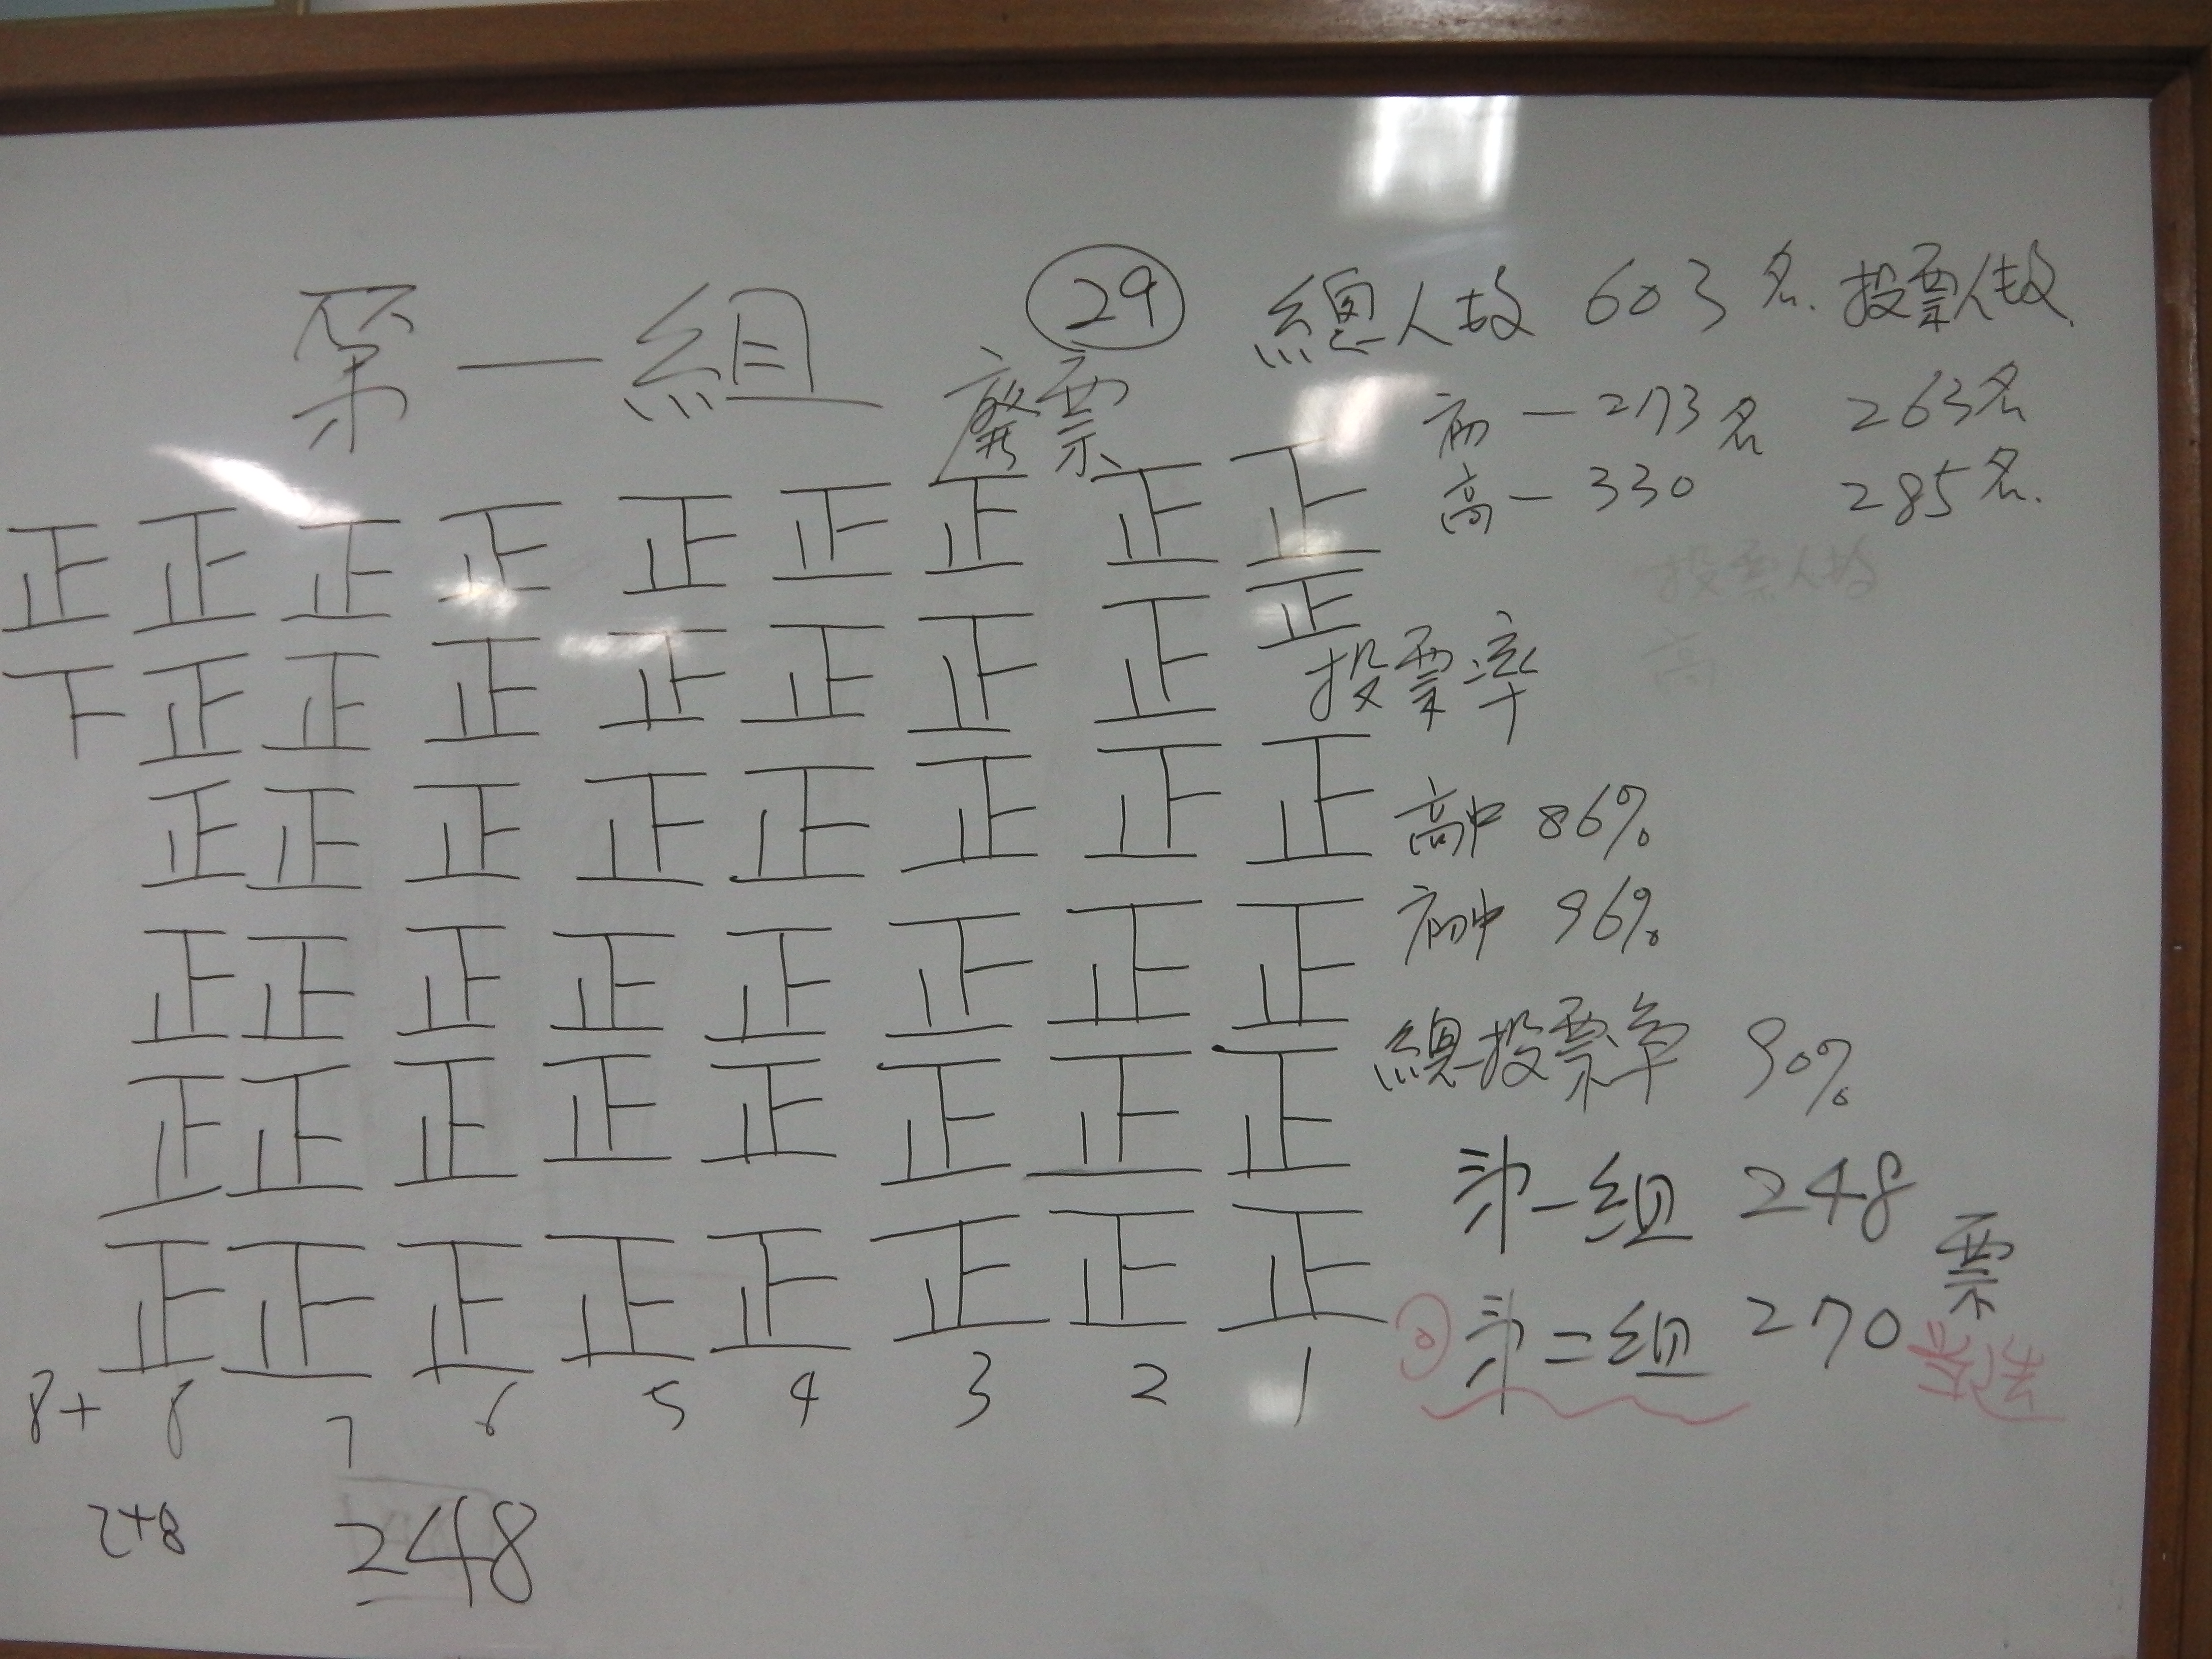 第一組
29
廢票
正正正正正正正正正
下正正正正正正正正
正正正正正正正正
正正正正正正正正
正正正正正正正正
正正正正正正正正
8+ 8 7 6 5 4 3 2 1
248
248
總人数 603名. 投票人数
初一273名 263名
高一330 285名.
投票人数
高
投票率
高中 86%
初中 96%
總投票率 90%
第一組 248
第二組 270
票
當選